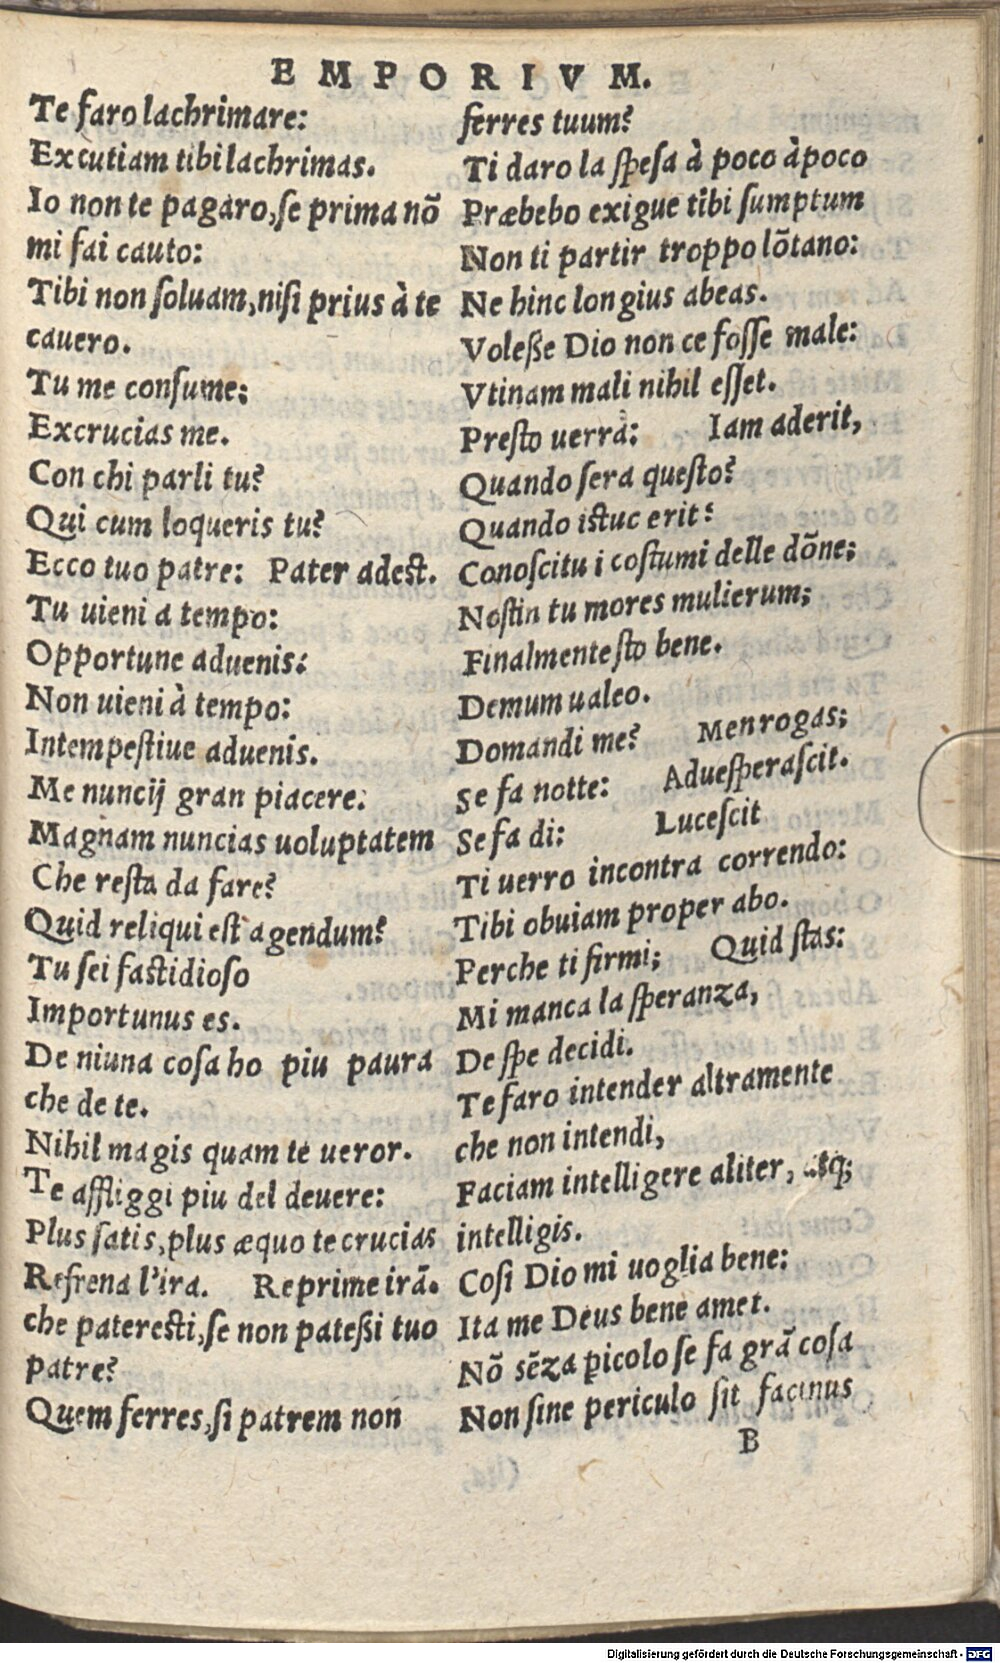 EMPORIVM.
Te faro lachrimare:
Excutiam tibi lachrimas.
Io non te pagaro,se prima nõ
mi fai cauto:
Tibi non soluam,nisi prius à te
cauero.
Tu me consume:
Excrucias me.
Con chi parli tu?
Qui cum loqueris tu?
Ecco tuo patre: Pater adest.
Tu uieni a tempo:
Opportune aduenis:
Non uieni à tempo:
Intempestiue aduenis.
Me nuncij gran piacere:
Magnam nuncias uoluptatem
Che resta da fare?
Quid reliqui est agendum?
Tu sei fastidioso
Importunus es.
De niuna cosa ho piu paura
che de te.
Nihil magis quam te ueror.
Te affliggi piu del deuere:
Plus satis,plus æquo te crucias
Refrena l'ira. Reprime irã.
che pateresti,se non pateßi tuo
patre?
Quem ferres,si patrem non
ferres tuum?
Ti daro la spesa à poco àpoco
Præbebo exigue tibi sumptum
Non ti partir troppo lõtano:
Ne hinc longius abeas.
Voleße Dio non ce fosse male:
Vtinam mali nihil esset.
Presto uerrà: Iam aderit,
Quando sera questo?
Quando istuc erit?
Conoscitu i costumi delle dõne;
Nostin tu mores mulierum;
Finalmente sto bene.
Demum ualeo.
Domandi me? Menrogas;
Se fa notte: Aduesperascit.
Se fa di: Lucescit
Ti uerro incontra correndo:
Tibi obuiam proper abo.
Perche ti firmi; Quid stas:
Mi manca la speranza,
De spe decidi.
Te faro intender altramente
che non intendi,
Faciam intelligere aliter, atq;
intelligis.
Cosi Dio mi uoglia bene:
Ita me Deus bene amet.
Nõ sẽza p̱icolo se fa grã cosa
Non sine periculo sit facinus
B
Digitalisierung gefördert durch die Deutsche Forschungsgemeinschaft - DFG